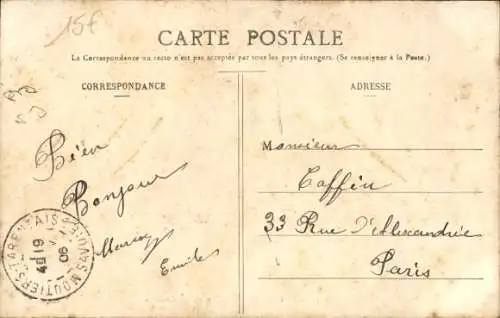 15f
CARTE POSTALE
La Correspondance au recto n'est pas acceptée par tous les pays étrangers. (Se renseigner à la Poste.)
CORRESPONDANCE
ADRESSE
Bien
Bonjour
Emile
Monsieur
Caffin
33 Rue d'Alexandrie
Paris
MOUTIERS-TARENTAISE SAVOIE
19
06